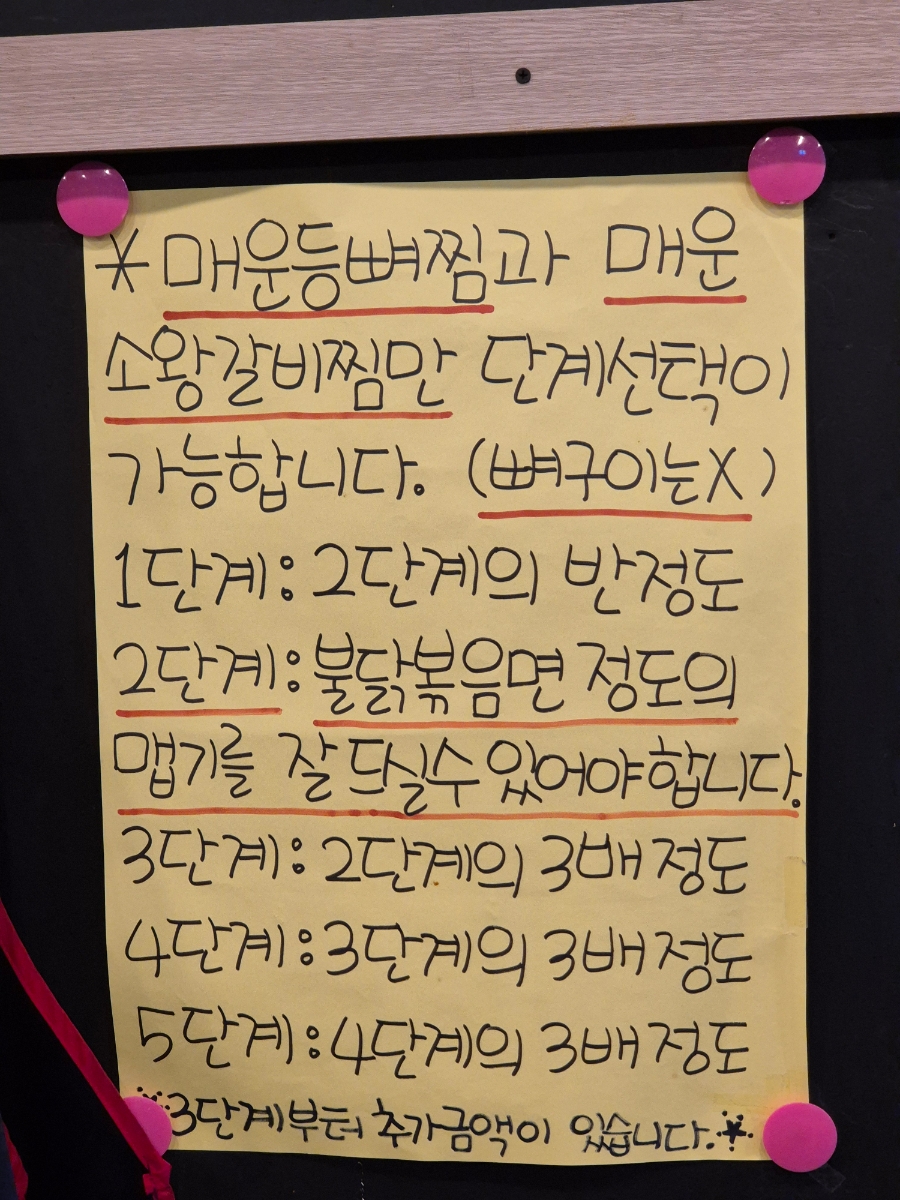 * 매운등뼈찜과 매운
소왕갈비찜만 단계선택이
가능합니다. (뼈구이는X)
1단계: 2단계의 반정도
2단계: 불닭볶음면 정도의
맵기를 잘 드실수 있어야합니다.
3단계: 2단계의 3배 정도
4단계: 3단계의 3배 정도
5단계: 4단계의 3배 정도
※3단계부터 추가금액이 있습니다.※